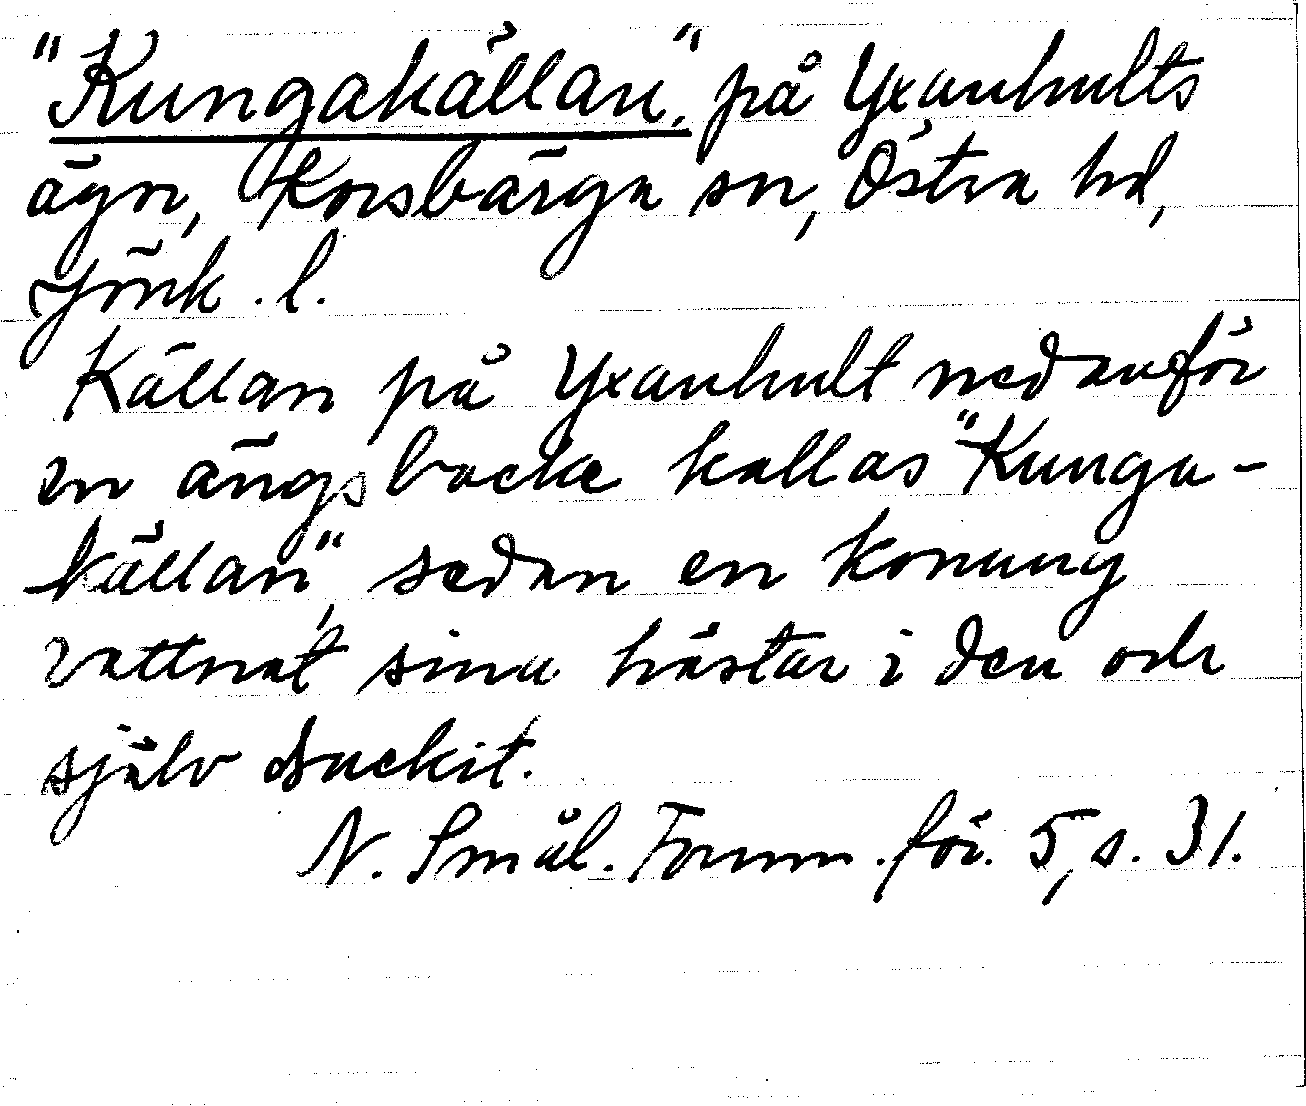 "Kungakällan", på Yxanhults
ägor, Korsbärga sn, Östra hd,
Jönk. l.
Källan på Yxanhult nedanför
en ängsbacke kallas "Kunga-
källan", sedan en konung
vattnat sina hästar i den och
själv druckit.
N. Smål. Fornm. för. 5, s. 31.